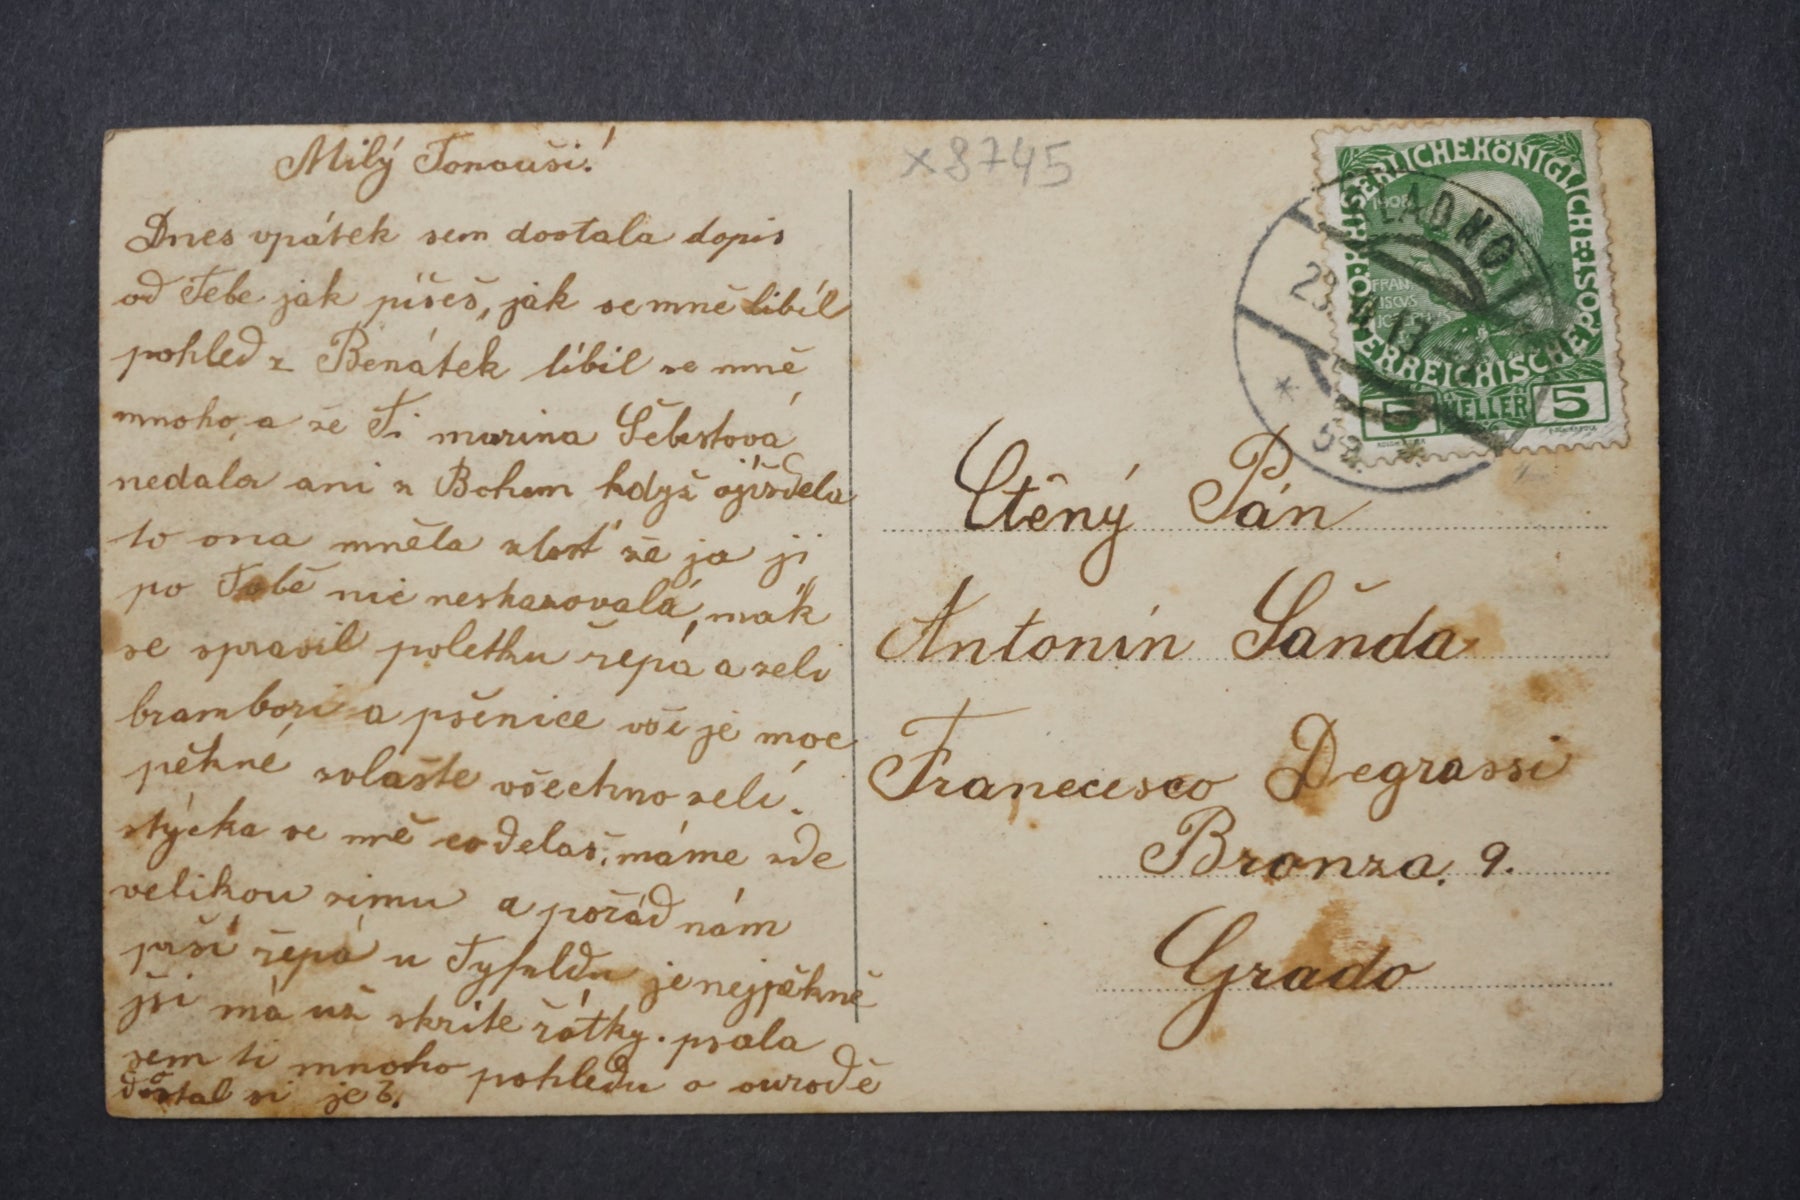 Milý Tonouši!
Dnes vpátek sem dostala dopis
od Tebe jak píšeš, jak se mně libíl
pohled z Benátek líbil se mně
mnoho, a že Ti marina Šebestová
nedala ani z Bohem když
to ona mněla zlost že ja ji
po Tobě nic neskazovalá, mák
se spravil poletku řepá a zeli
brambori a pšenice vše je moc
pěkné zvlašte všechno zelí.
stýcka se mě co delaš, máme zde
velikou zimu a pořád nám
prší řepá u je nejpěkně
jši má už skrite řátky. psala
sem ti mnoho pohledu o ourodě
dostal si je?.
x8745
KAISERLICHE KÖNIGLICHE ÖSTERREICHISCHE POST
1908
FRAN
ISCVS
5 HELLER 5
KLADNO
5a
Ctěný Pán
Antonín Šanda
Francesco Degrassi
Bronza. 9.
Grado